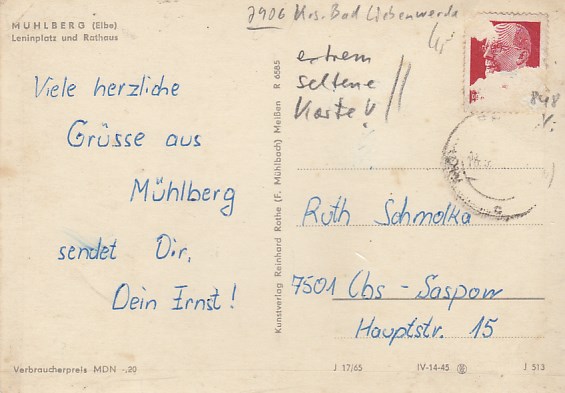 MÜHLBERG (Elbe)
Leninplatz und Rathaus
7906 Krs. Bad Liebenwerda
extrem
seltene
Karte!
848
Viele herzliche
Grüsse aus
Mühlberg
sendet Dir,
Dein Ernst!
Kunstverlag Reinhard Rothe (F. Mühlbach) Meißen R 6585
Ruth Schmolka
7501 Cbs - Saspow
Hauptstr. 15
Verbraucherpreis MDN -,20
J 17/65 IV-14-45 J 513